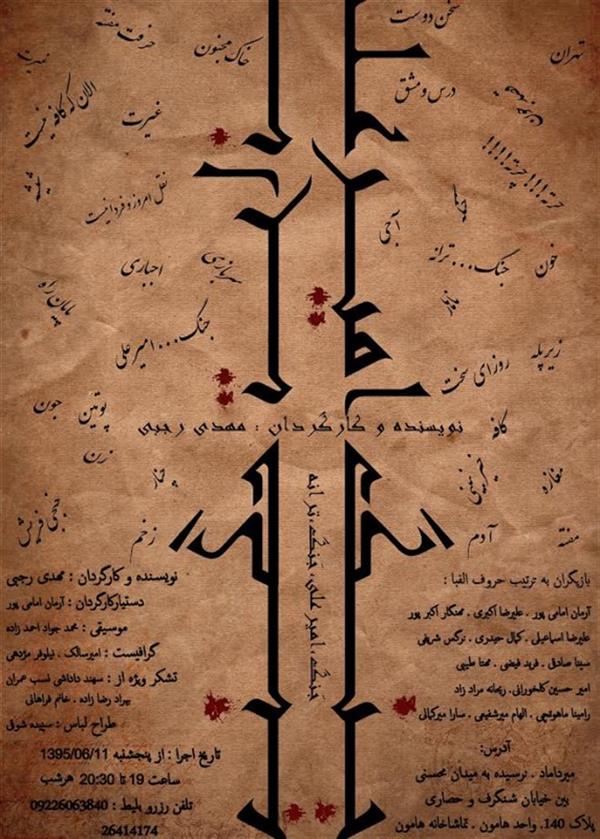 سخن دوست
حرفت مفته
تهران
خاک مجنون
درس و مشق
الان که کافه نیست
غیرت
چرته!!!! چرته!!!!
شیشه
نقل امروز و فردا نیست
آجی
جنگ...ترانه
خون
اجباری
سربازی
مامان راه
جنگ...امیرعلی
زیر پله
روزای سخت
جون
پوتین
کافه
زن
مغازه
زخم
آدم
مفته
نویسنده و کارگردان : مهدی رجبی
جنگ،امیرعلی،جنگ،ترانه
نویسنده و کارگردان : مهدی رجبی
دستیارکارگردان : آرمان امامی پور
موسیقی : محمد جواد احمد زاده
گرافیست : امیرسالک . نیلوفر مژدهی
تشکر ویژه از : سهند داداشی نسب عمران
بهراد رضا زاده . خانم فراهانی
طراح لباس : سپیده شوقی
تاریخ اجرا : از پنجشنبه 1395/06/11
ساعت 19 تا 20:30 هرشب
تلفن رزرو بلیط : 09226063840
26414174
بازیگران به ترتیب حروف الفبا :
آرمان امامی پور . علیرضا اکبری . مهنگار اکبر پور
علیرضا اسماعیلی . کمال حیدری . نرگس شریفی
سینا صادق . فرید فیضی . مهتا طیبی
امیر حسین کلخورانی. ریحانه مراد زاد
رامینا ماهوتچی . الهام میرشفیعی . سارا میرکمالی
آدرس:
میرداماد . نرسیده به میدان محسنی
بین خیابان شنگرف و حصاری
پلاک 140. واحد هامون . تماشاخانه هامون